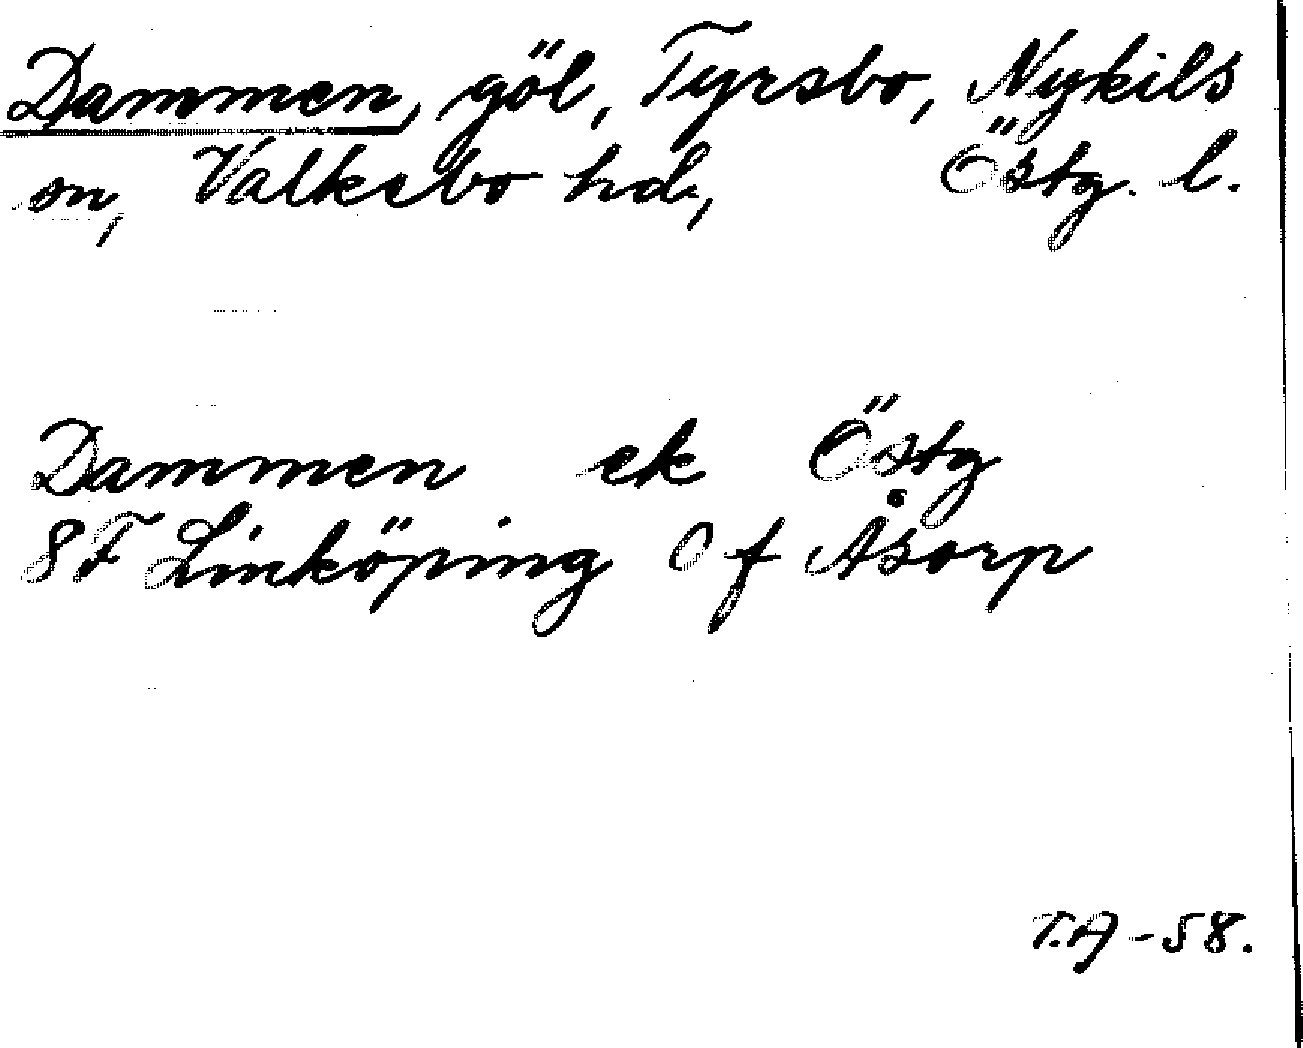 Dammen, göl, Tyrsbo, Nykils
sn, Valkebo hd, Östg. l.
Dammen ek Östg
8F Linköping 0 f Åsorp
T.A - 58.